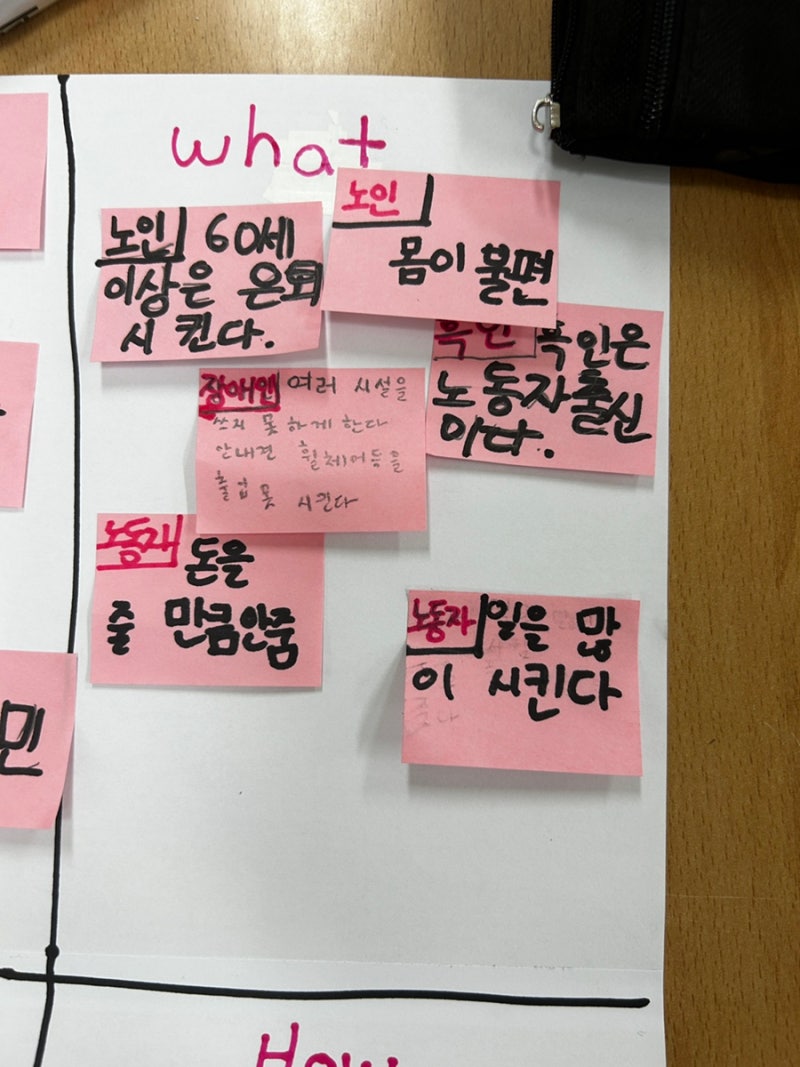 what
노인 60세
이상은 은퇴
시킨다.
노인
몸이 불편
흑인 흑인은
노동자출신
이다.
장애인 여러 시설을
쓰지 못하게 한다
안내견 휠체어등을
출입 못 시킨다
노동자 돈을
줄 만큼안줌
노동자 일을 많
이 시킨다
민
How